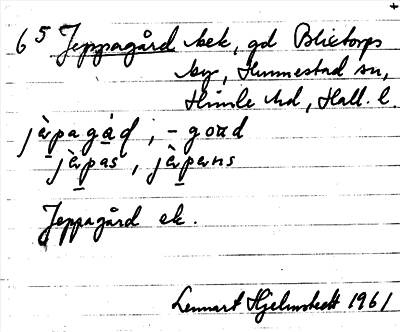 6⁵ Jeppagård bek, gd Blixtorps
by, Hunnestad sn,
Himle hd, Hall. l.
jæ̀pagáḍ ; - goɑ̀ḍ
jæ̀pas , jæ̀pans
Jeppagård ek.
Lennart Hjelmstedt 1961